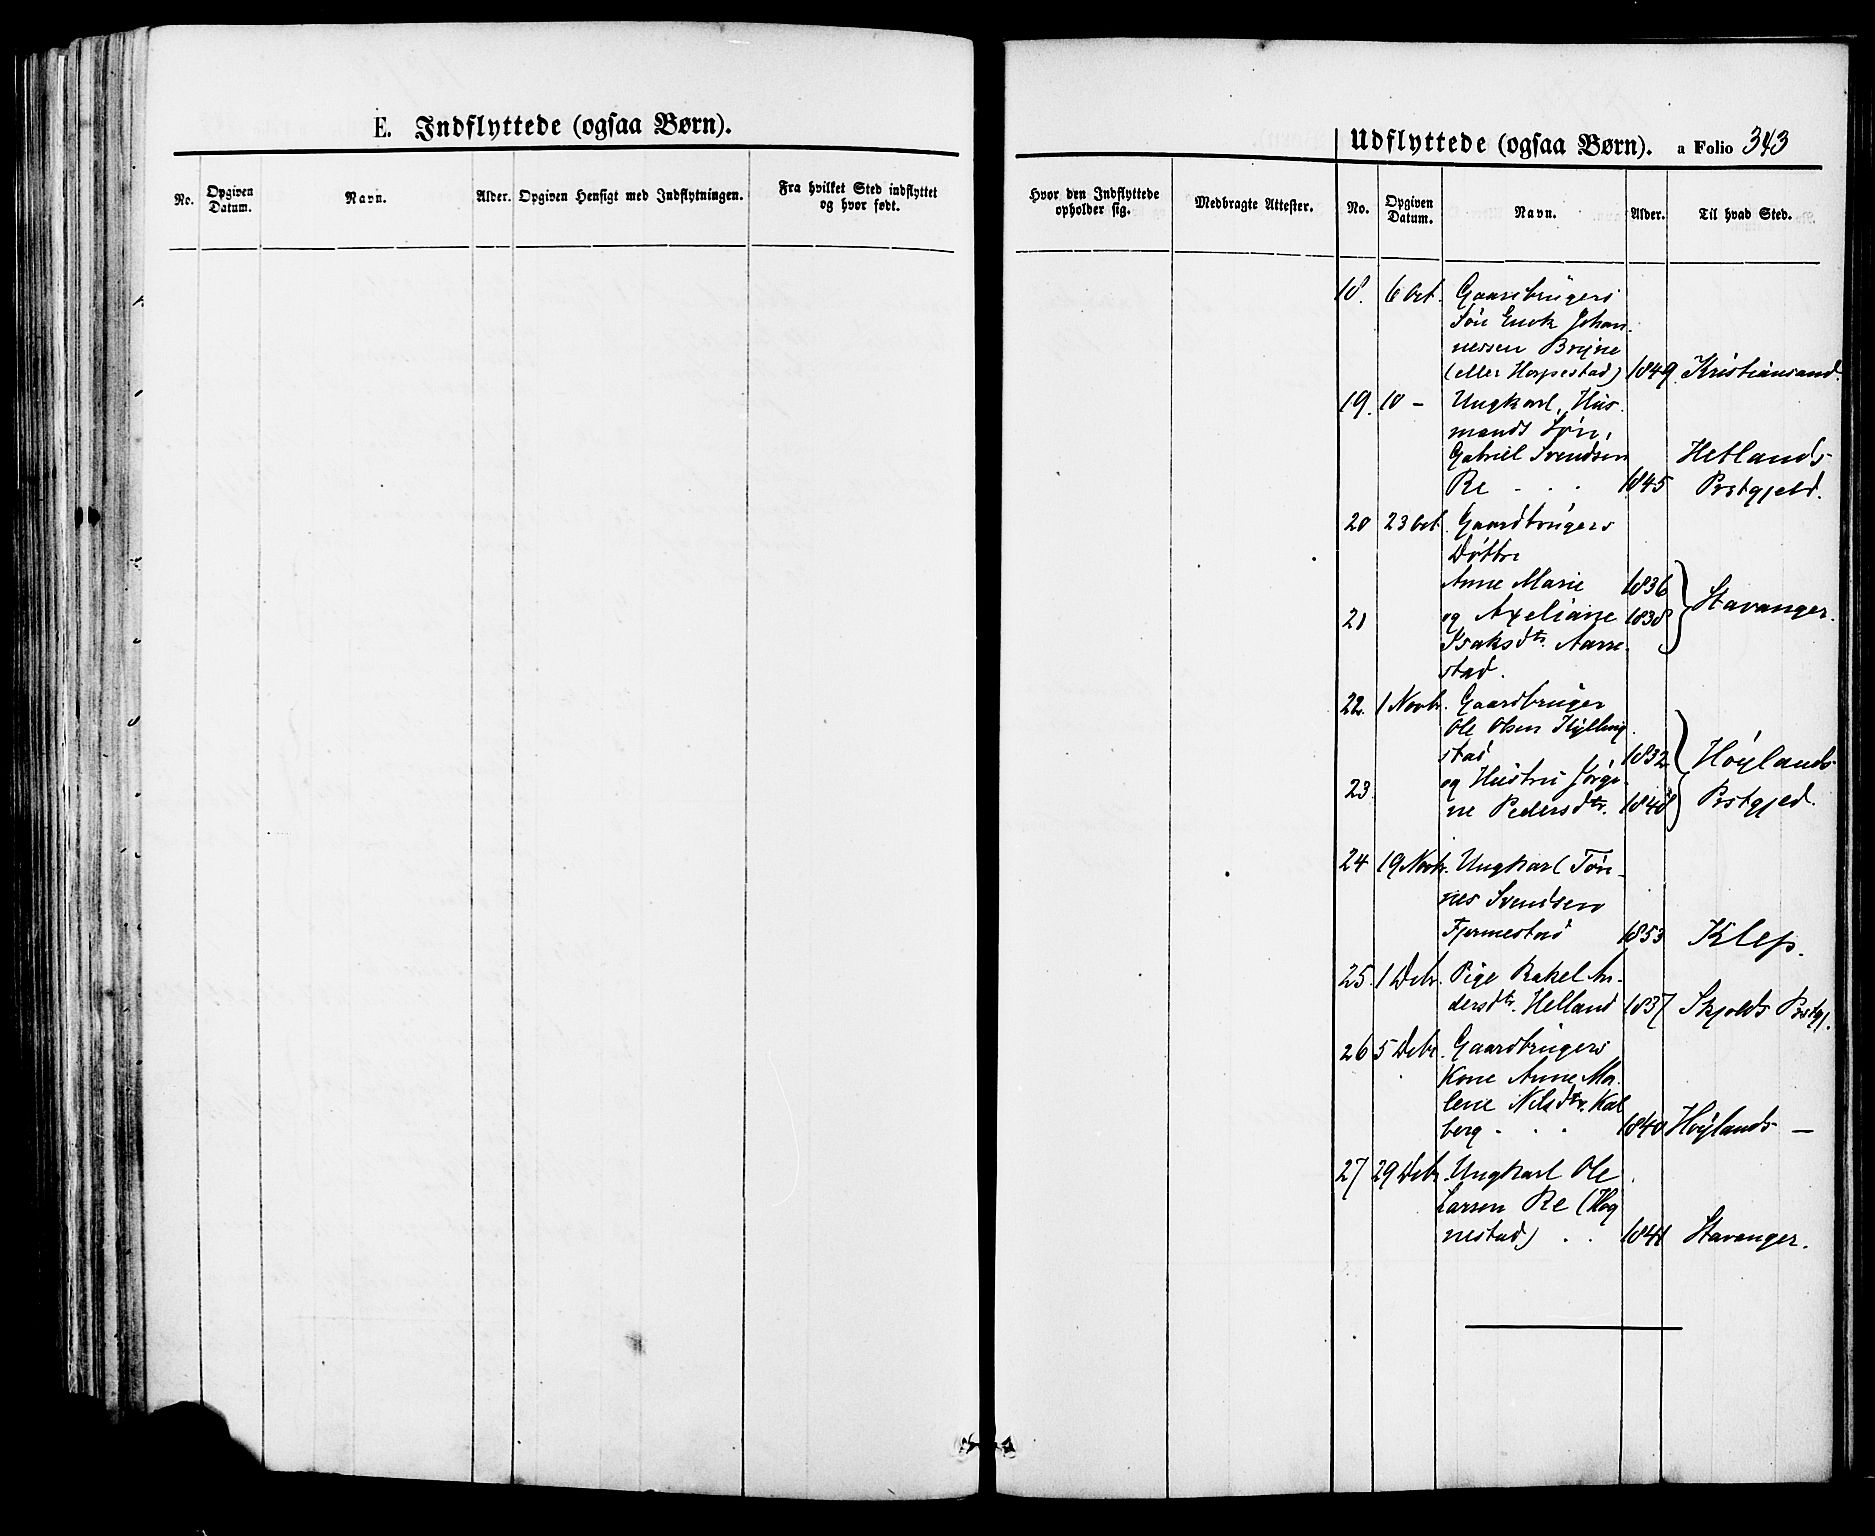 E. Indflyttede (ogsaa Børn).
No.
Opgiven
Datum.
Navn.
Alder.
Opgiven Hensigt med Indflytningen.
Fra hvilket Sted indflyttet
og hvor født.
Udflyttede (ogsaa Børn). a Folio 343
Hvor den Indflyttede
opholder sig.
Medbragte Attester.
No.
Opgiven
Datum.
Navn.
Alder.
Til hvad Sted.
18. 6 Oct. Gaardbrugers
Søn Enok Johan-
nessen Bryne
(eller Horpestad) 1849. Kristiansand.
19. 10 - Ungkarl, Hus-
mands Søn,
Gabriel Svendsen Hetlands-
Re - . . 1845 Prstgjeld.
20 23 Oct. Gaardbrugers
Døttre
Anne Marie 1836
21 og Axeliane 1838 Stavanger.
Isaksdtr. Aarre-
stad.
22. 1 Novbr. Gaardbruger
Ole Olsen Kylling-
stad 1832 Høylands-
23 og Hustru Jørgi-
ne Pedersdtr. 1848 Prstgjed.
24 19 Novbr. Ungkarl Tøn-
nes Svendsen
Fjermestad 1853 Klep.
25. 1 Debr. Pige Rakel An-
dersdtr. Helland 1837 Skjolds Prstgj.
26 5 Debr. Gaardbrugers
Kone Anne Ma-
lene Nilsdtr. Kal-
berg - . . 1840 Høylands -
27 29 Debr. Ungkarl Ole
Larsen Re (Hog-
nestad) . . 1841 Stavanger.